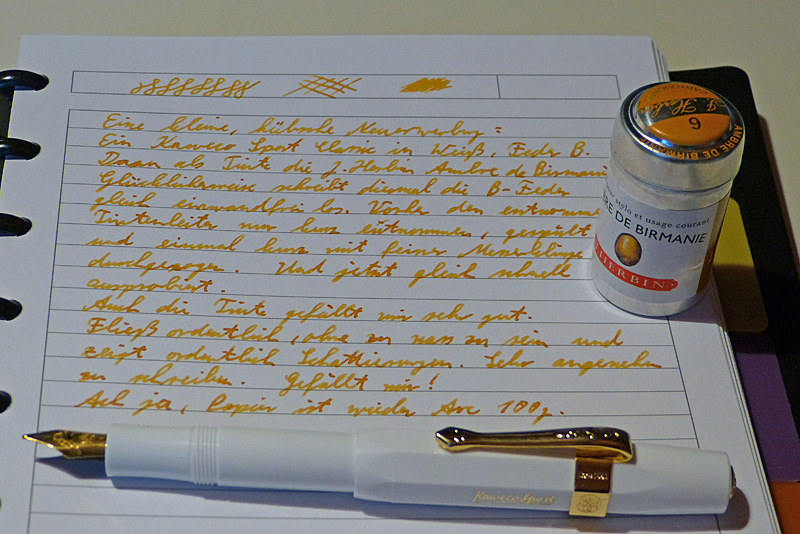 Eine kleine, hübsche Neuerwerbung:
Ein Kaweco Sport Classic in Weiß, Feder B.
Dazu als Tinte die J. Herbin Ambre de Birmanie
Glücklicherweise schreibt diesmal die B-Feder
gleich einwandfrei los. Vorher den
Tintenleiter nur kurz entnommen, gespült
und einmal kurz mit feiner Messerklinge
durchgezogen. Und jetzt gleich schnell
ausprobiert.
Auch die Tinte gefällt mir sehr gut.
Fließt ordentlich, ohne zu nass zu sein und
zeigt ordentlich Schattierungen. Sehr angenehm
zu schreiben. Gefällt mir!
Ach ja, Papier ist wieder Avc 100g.
J. Herbin
6
AMBRE DE BIRMANIE
stylo et usage courant
BRE DE BIRMANIE
HERBIN
Kaweco Sport